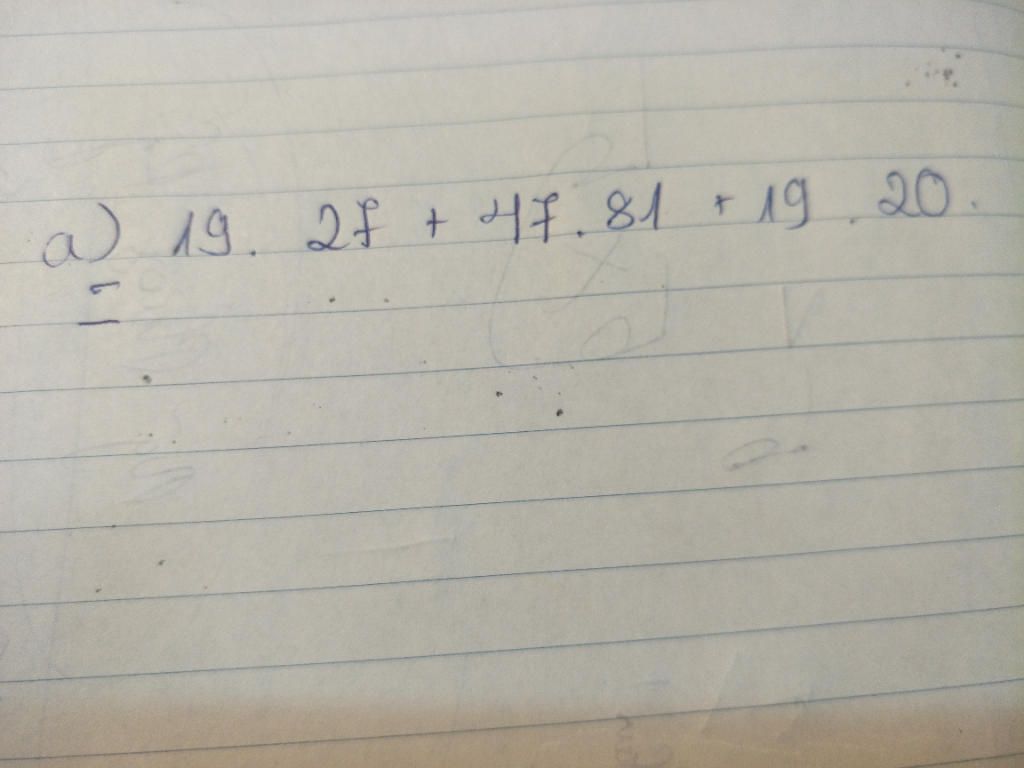 a) 19. 27 + 47. 81 + 19 . 20.
=